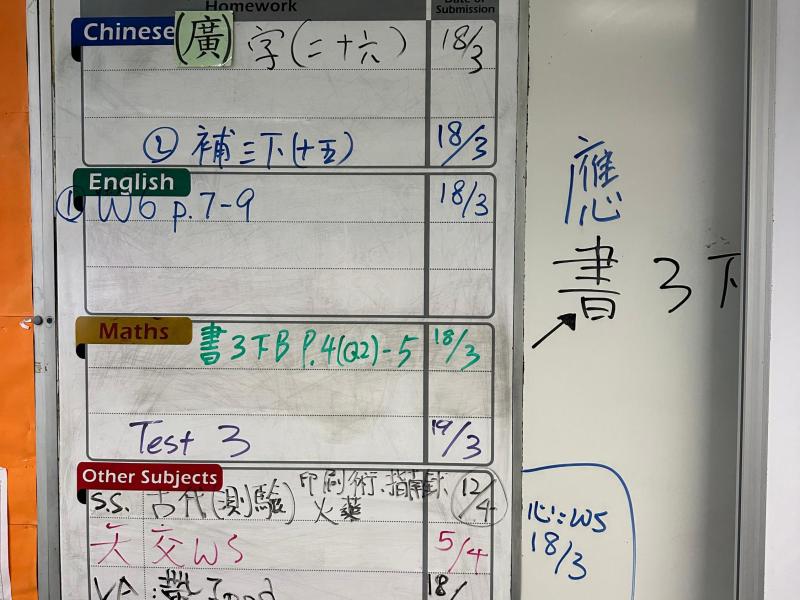 Homework
Date of Submission
Chinese (廣) 字(二十六) 18/3
② 補三下(十五) 18/3
English
① W6 p.7-9 18/3
Maths
書3下B P.4(Q2)-5 18/3
Test 3 19/3
Other Subjects
S.S. 古代(測驗) 印刷術、指南針、 12/4
火藥
交WS 5/4
VA Food 18/
應
書 3下
心: WS
18/3